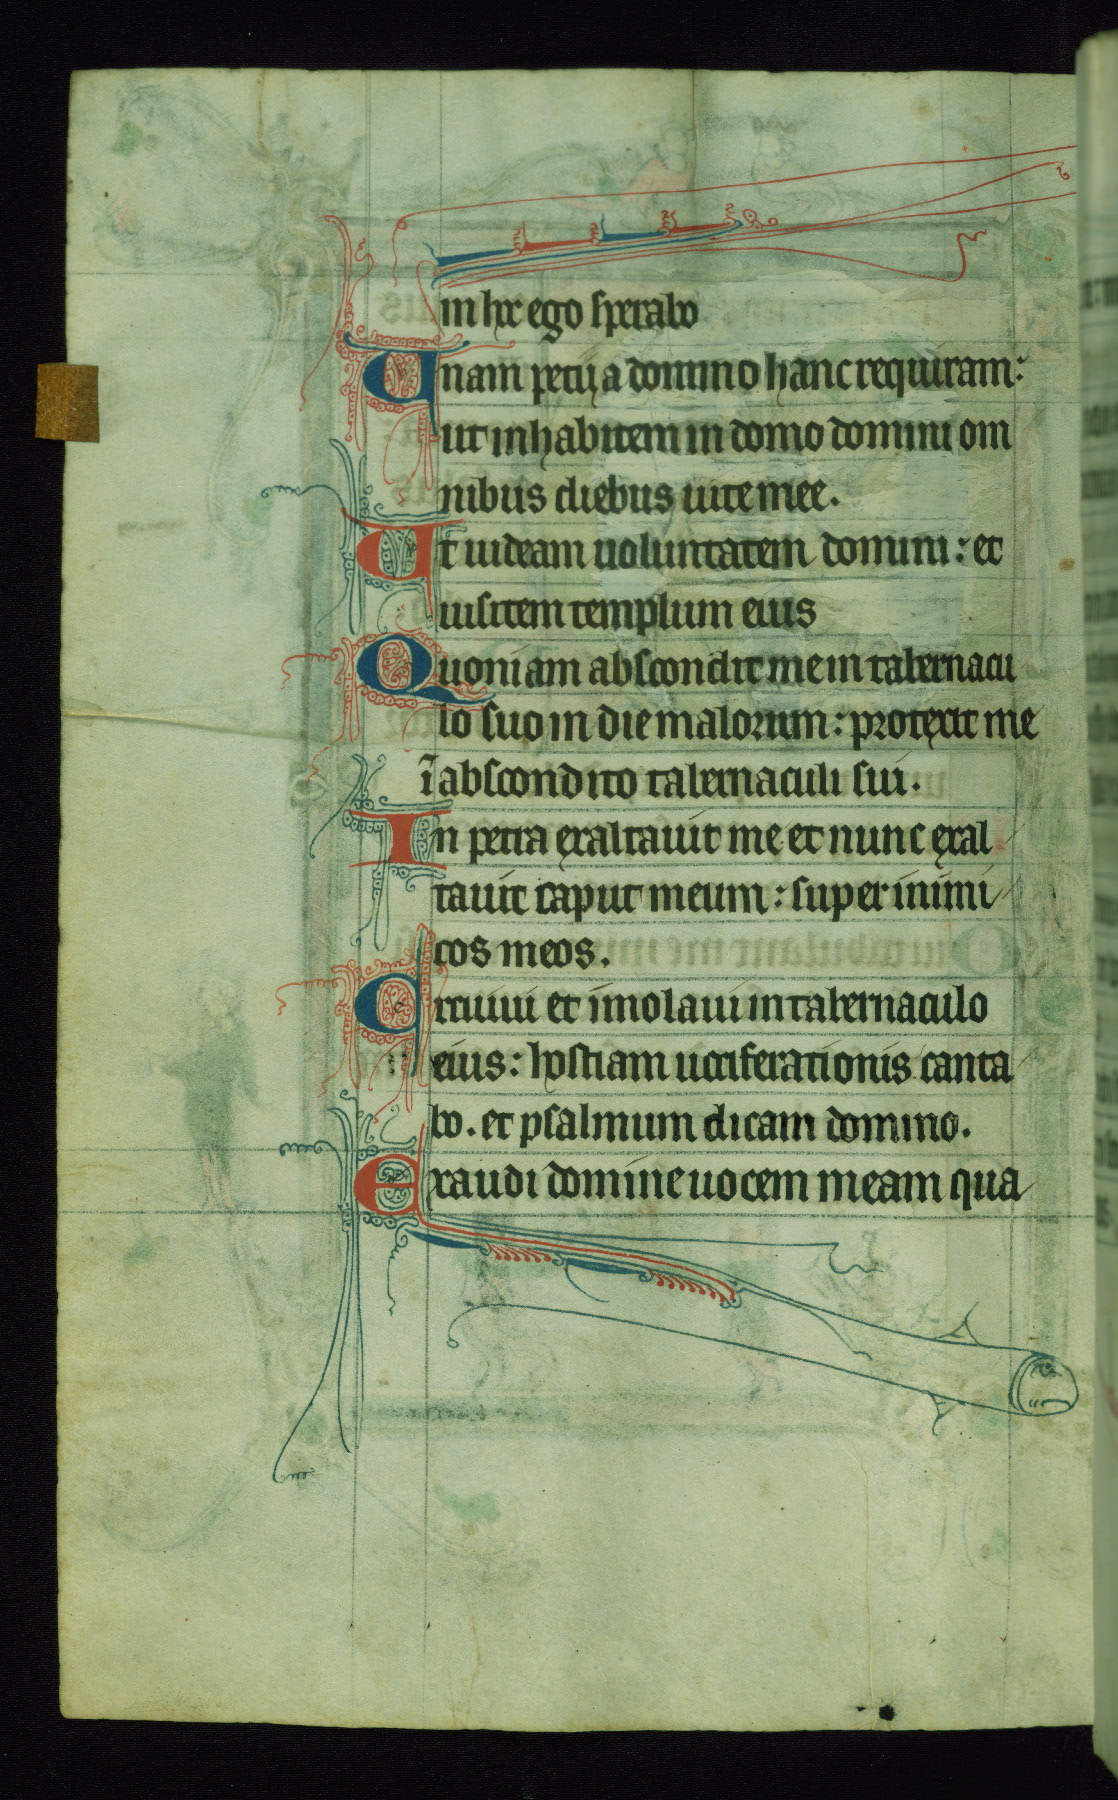 in hoc ego sperabo
Unam petij a domino hanc requiram:
ut inhabitem in domo domini om
nibus diebus uite mee.
Ut uideam uoluntatem domini: et
uisitem templum eius
Quoniam abscondit me in tabernacu
lo suo in die malorum: protexit me
ī abscondito tabernaculi sui.
In petra exaltauit me et nunc exal
tauit caput meum: super inimi
cos meos.
Circuiui et imolaui in tabernaculo
eius: hostiam uociferationis canta
bo. et psalmum dicam domino.
Exaudi domine uocem meam qua